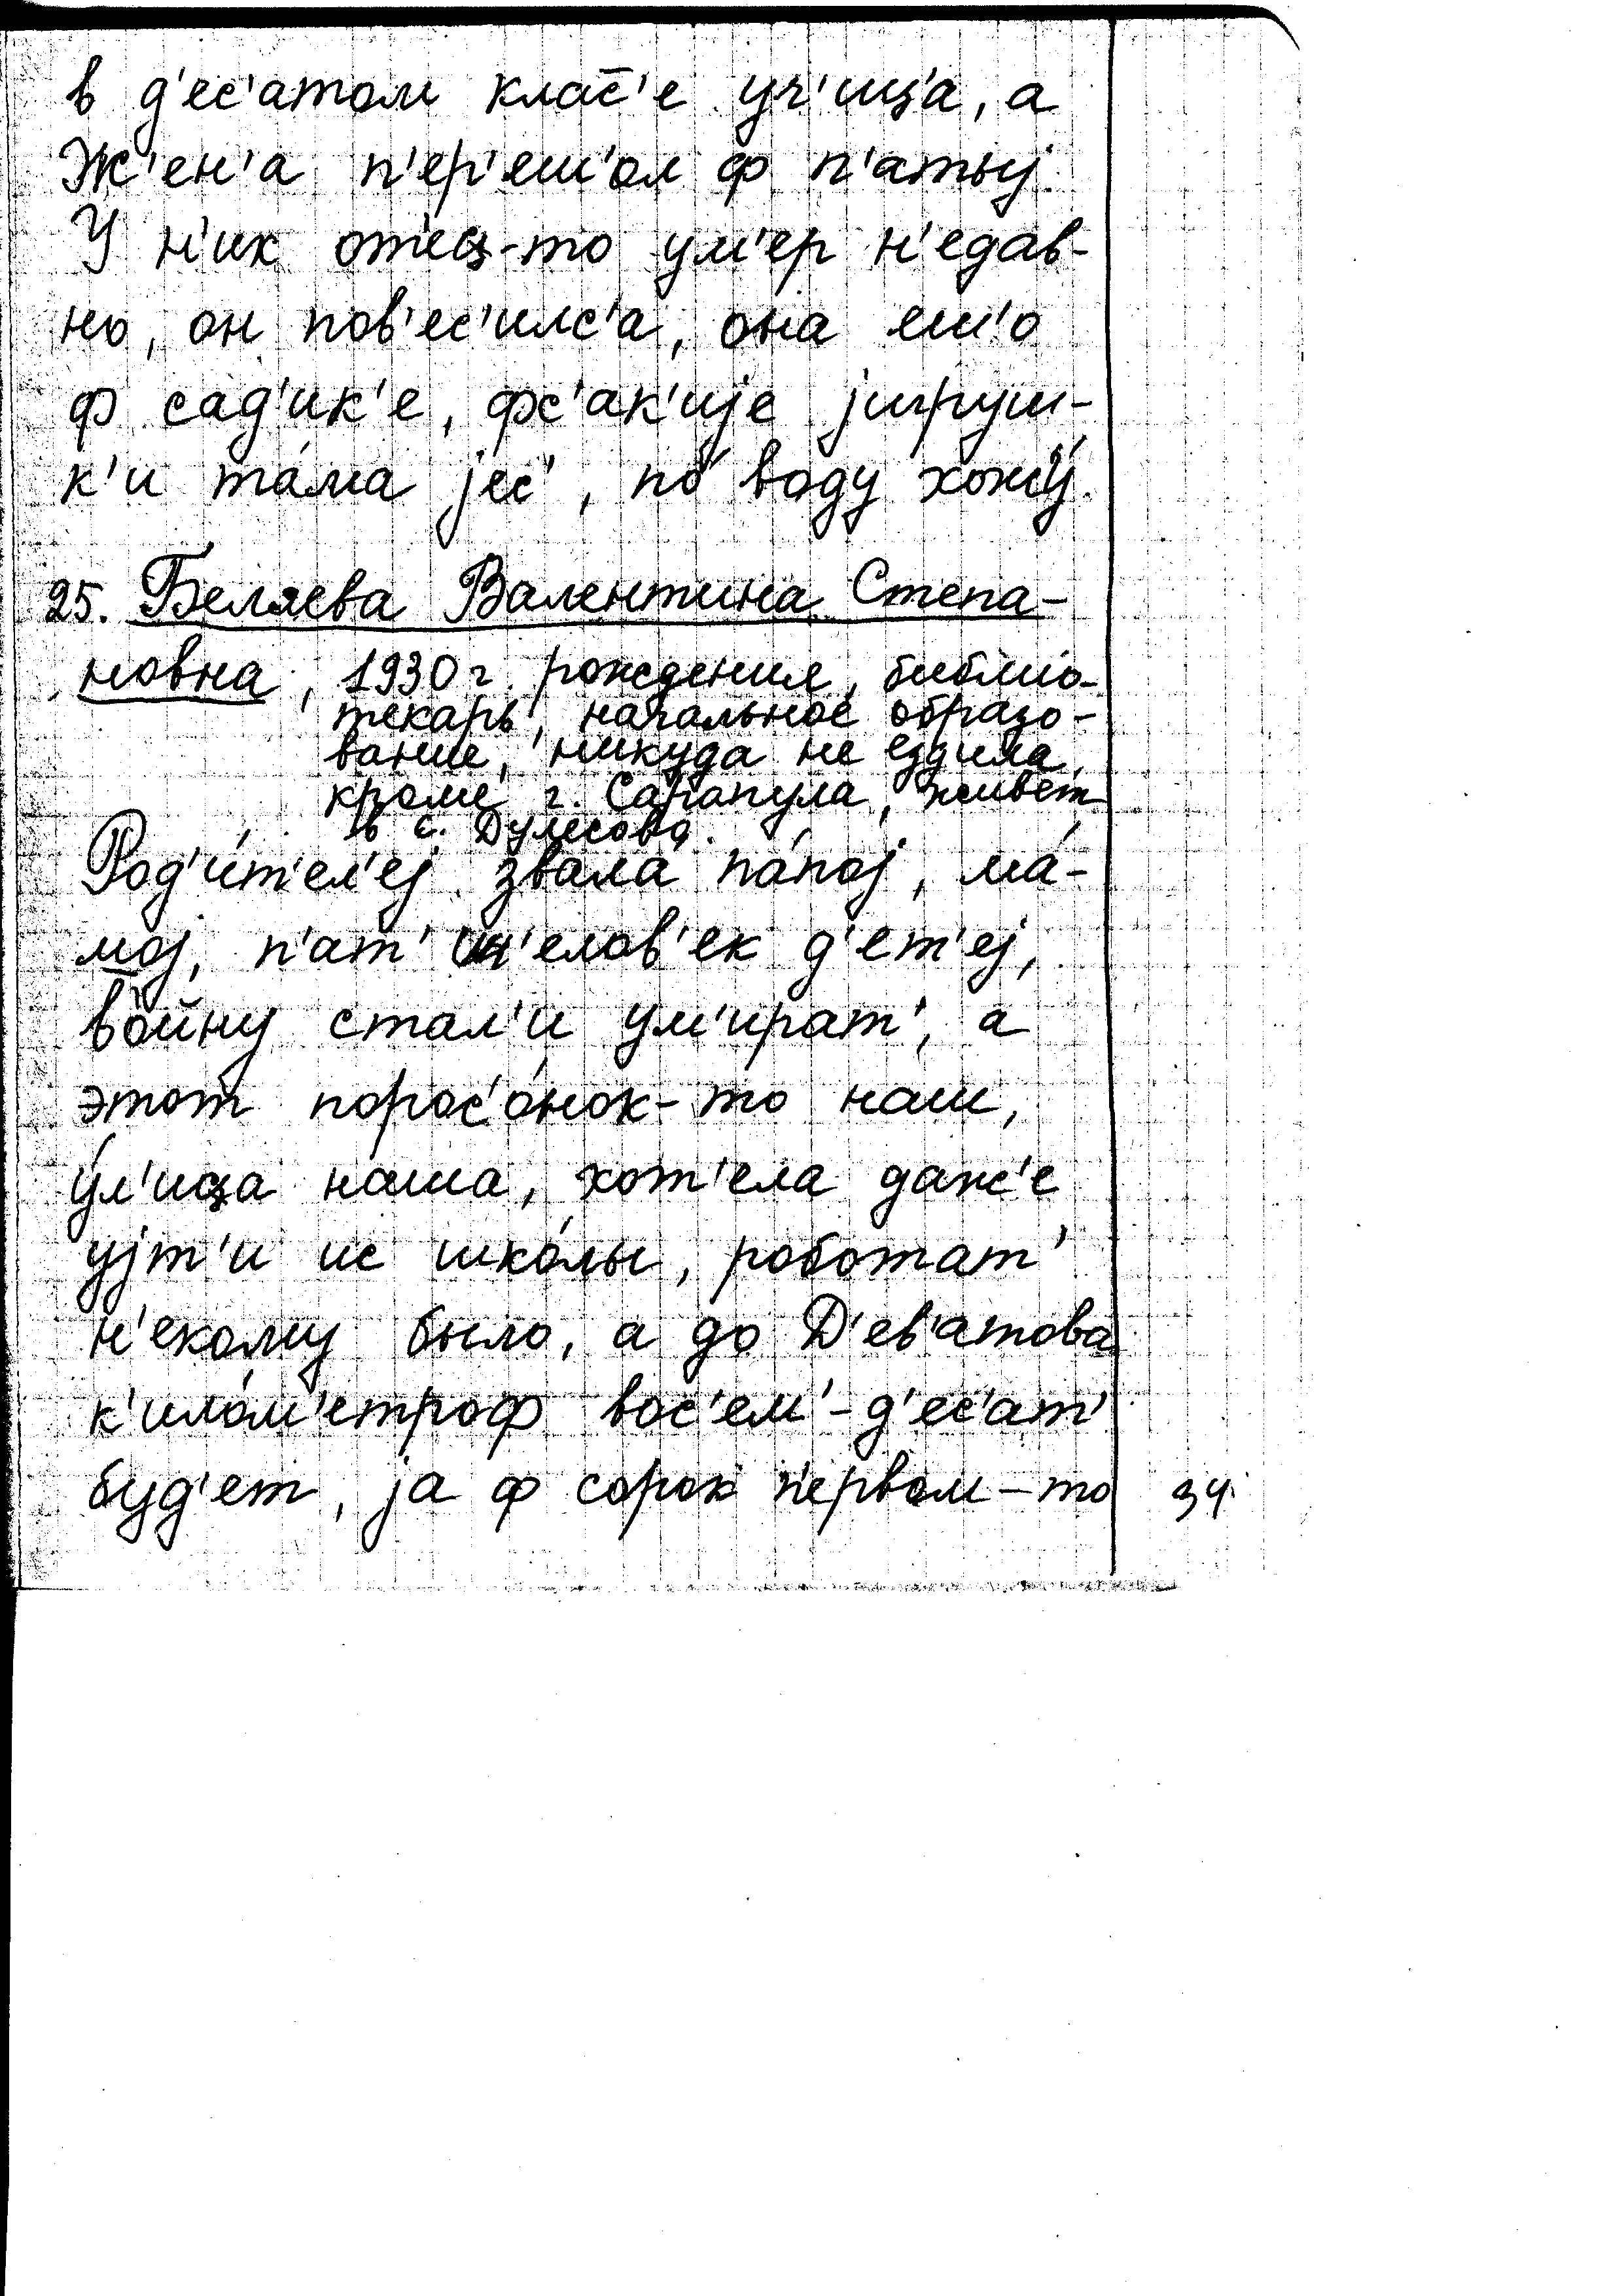 в д'ес'атом клас̄'е уч'ица, а
Ж'ен'а п'ер'еш'ол ф п'атыј.
У н'их от'ец-то ум'ер н'едав-
но, он пов'ес'илс'а, она еш'о
ф сад'ик'е, фс'ак'ије јигруш-
к'и та́ма јес', по́ воду хожу́.
25. Беляева Валентина Степа-
новна, 1930 г. рождения, библио-
текарь, начальное образо-
вание, никуда не ездила,
кроме г. Сарапула, живёт
в с. Дулесово.
Род'и́т'ел'еј звала́ па́пој, ма́-
мој, п'ат' ч'елов'ек д'ет'еј,
войну стал'и ум'ират', а
этот порос'о́нок-то наш,
у́л'ица наша, хот'ела даж'е
ујт'и ис шко́лы, роботат'
н'екому было, а до Д'ев'атова
к'ило́м'етроф вос'ем'-д'ес'ат'
буд'ет, ја ф сорок п'ервом-то
34